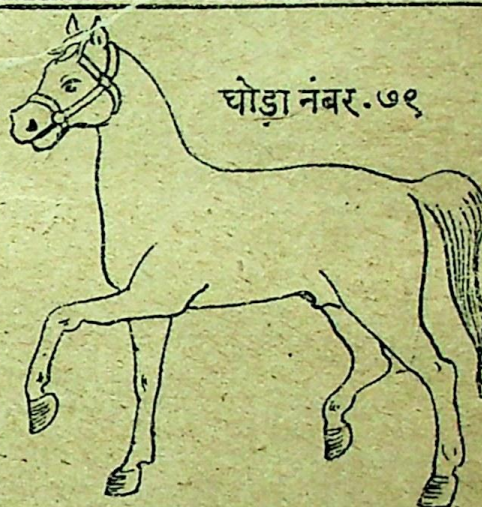 घोड़ा नंबर.७९